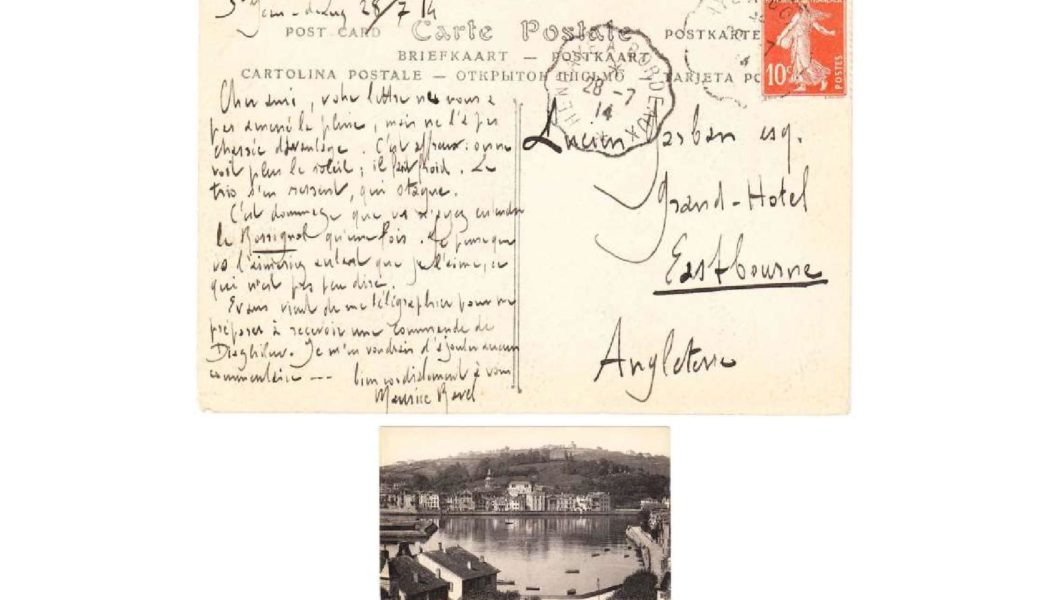 St Jean-de-Luz 28/7 14
Carte Postale
POST CARD POSTKARTE
BRIEFKAART — POSTKAART
CARTOLINA POSTALE — ОТКРЫТОЕ ПИСЬМО — TARJETA PO
10c
POSTES
HENDAYE A BORDEAUX
28 -7
14
Cher ami, votre lettre ne nous a
pas amené la pluie, mais ne l'a pas
chassée davantage. C'est affreux: on ne
voit plus le soleil; il fait froid. Le
trio s'en ressent, qui stagne.
C'est dommage que vs n'ayez entendu
le Rossignol qu'une fois. Je pense que
vs l'aimeriez autant que je l'aime, ce
qui n'est pas peu dire.
Evans vient de me télégraphier pour me
préparer à recevoir une commande de
Diaghilew. Je m'en voudrais d'ajouter aucun
commentaire --- bien cordialement à vous
Maurice Ravel
Lucien Garban esq.
Grand-Hotel
Eastbourne
Angleterre